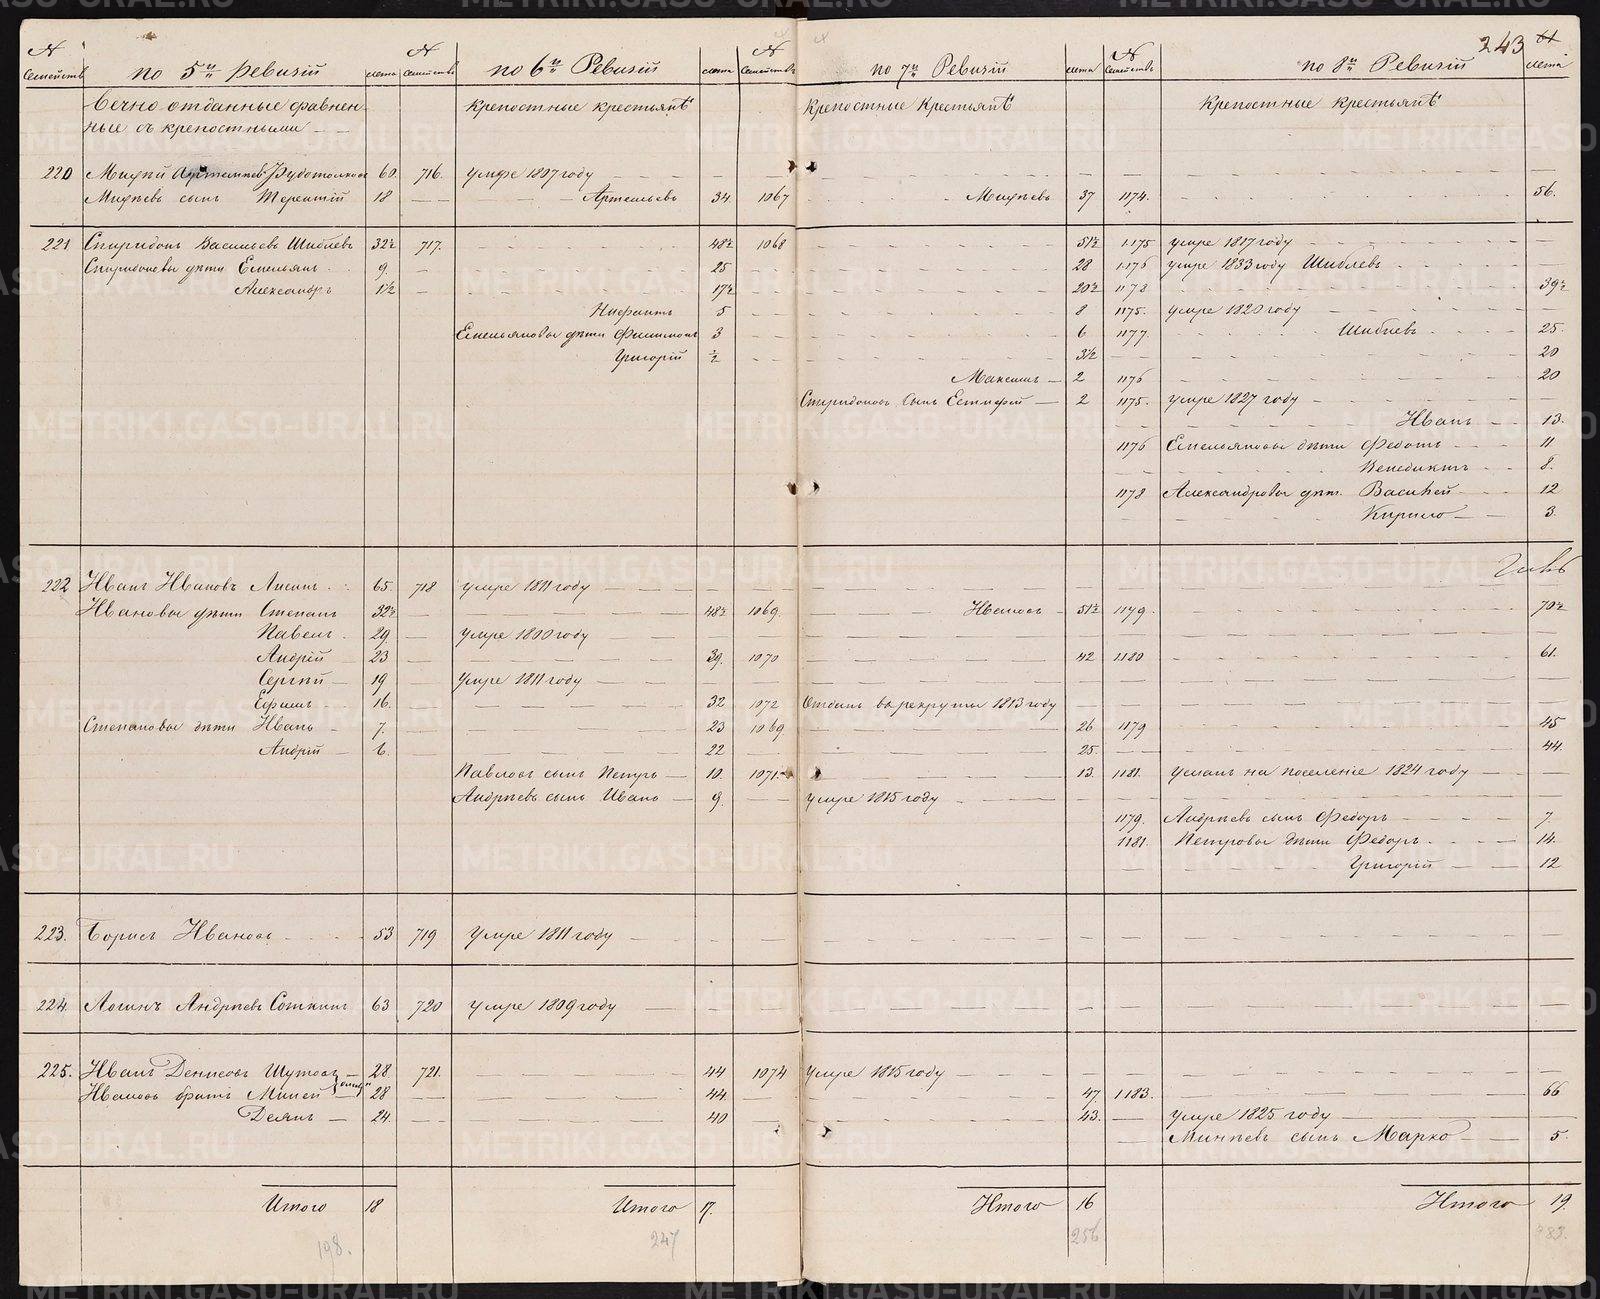 243 61
№ семействъ по 5й ревизіи лета № семействъ по 6й Ревизіи лета № семействъ по 7й Ревизіи лета № семействъ по 8й Ревизіи лета
Вечно отданные сравнен- Крепостные крестьянѣ Крепостные Крестьянѣ Крепостные крестьянѣ
ные съ крепостными
220 60. 716. умре 1807 году
Михѣевъ сынъ Терентій 18 Артемьевъ 34. 1067 Михѣевъ 37 1174. 56.
221 Спиридонъ Васильевъ Шиблевъ 32½ 717. 48½ 1068 51½ 1175 умре 1817 году
Спиридоновы дѣти Емельянъ 9. 25 28 1176 умре 1833 году Шиблевъ
Александръ 1½ 17½ 20½ 1178 39½
5 8 1175. умре 1820 году
Емельяновы дѣти Филимонъ 3 6 1177. 25.
Григорій ½ 3½ 20
Максимъ 2 1176 20
Спиридоновъ сынъ 2 1175. умре 1827 году
Иванъ 13.
1176 Емельяновы дѣти Федотъ 11
Венедиктъ 8.
1178 Александровы дѣт. Василей 12
Кирило 3.
222 Иванъ Ивановъ 65. 718 умре 1811 году
Ивановы дѣти Степанъ 32½ 48½ 1069. Ивановъ 51½ 1179. 70½
Павелъ 29. умре 1800 году
Андрій 23 39. 1070 42 1180 61.
Сергѣй 19 умре 1811 году
Ефимъ 16. 32 1072 Отданъ въ рекруты 1813 году
Степановы дѣти Иванъ 7. 23 1069 26 1179 45
Андрій 6. 22 25. 44.
Павловъ сынъ Петръ 10. 1071. 13. 1181. усланъ на поселеніе 1824 году
Андрѣевъ сынъ Иванъ 9. умре 1815 году
1179. Андрѣевъ сынъ Федоръ 7.
1181. Петровы дѣти Федоръ 14.
Григорій 12
223. Борисъ Ивановъ 53 719 умре 1811 году
224. Логинъ Андрѣевъ Соткинъ 63 720 умре 1809 году
225. Иванъ Денисовъ Шутовъ 28. 721. 44 1074 умре 1815 году
Ивановъ братъ Миней 28 44. 47. 1183. 66
Деянъ 24. 40 43. умре 1825 году
Минѣевъ сынъ Марко 5.
Итого 18 Итого 17. Итого 16 Итого 19.
198. 247 256 283.
METRIKI.GASO-URAL.RU